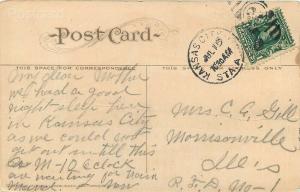 Post Card
THIS SPACE FOR CORRESPONDENCE
THIS SPACE FOR ADDRESS
KANSAS CITY
JUL 15
AM
STA. A
My dear Mother
we had a good
night sleep here
in Kansas City
as we could not
get out until this
A M-10 o'clock
are waiting for train
Mrs. C. G. Gill
Morrisonville
Ill's
R. F. D. No-1